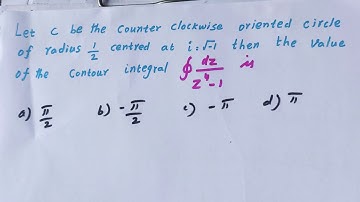 Let C be the Counter clockwise oriented circle
of radius 1/2 centred at i=√-1 then the value
of the contour integral ∮ dz/z⁴-1 is
a) π/2 b) -π/2 c) -π d) π